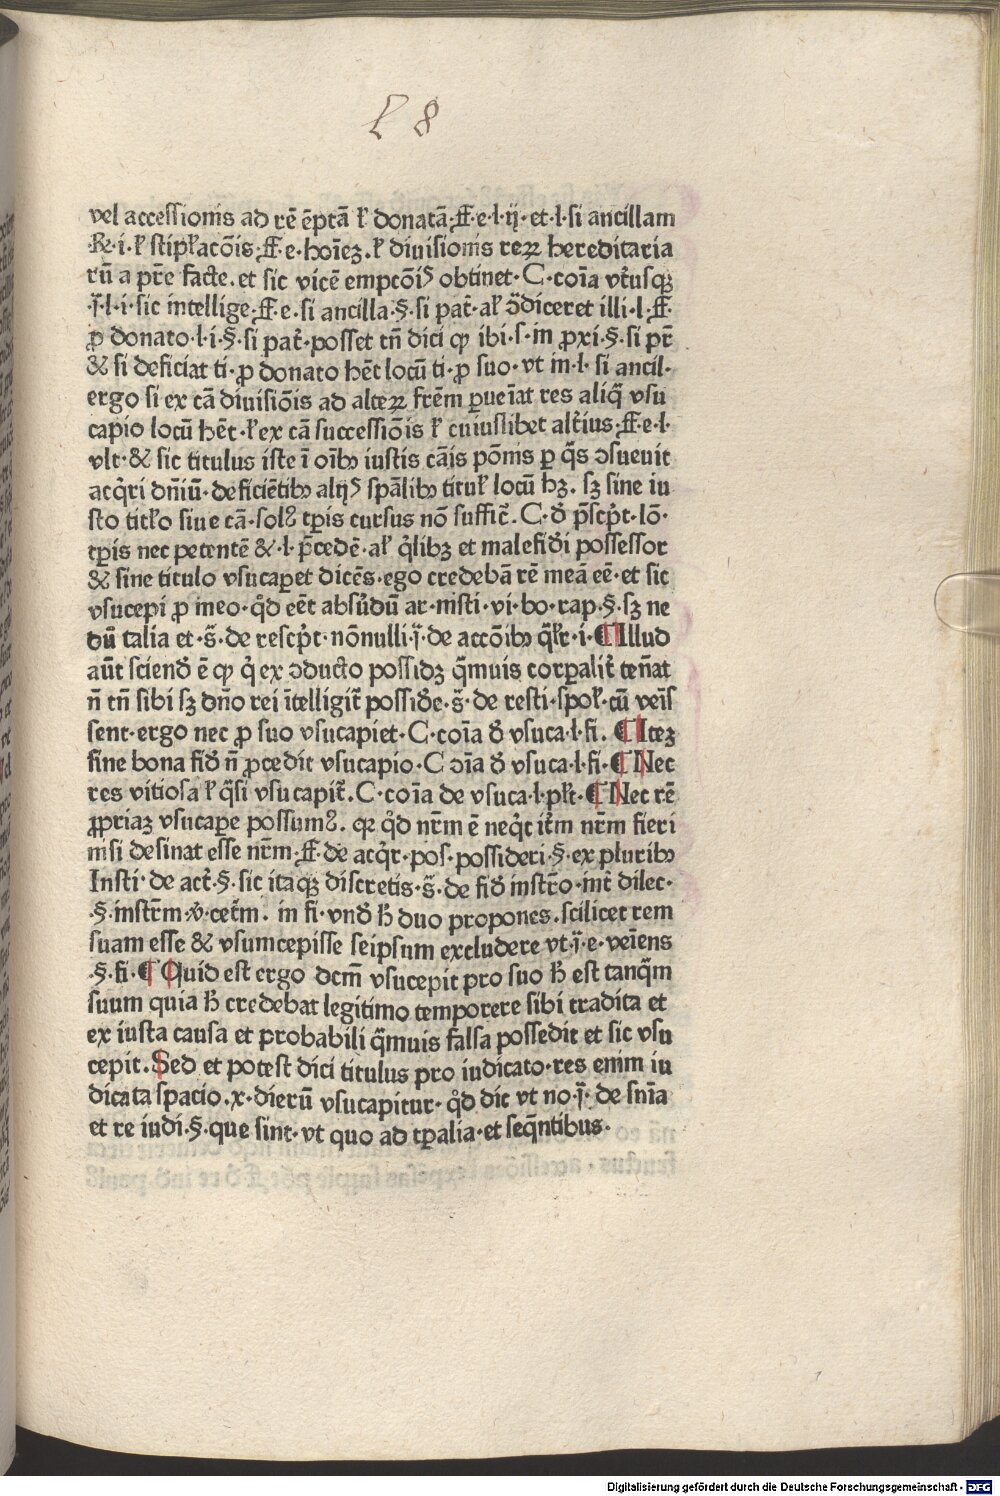 L 8
vel accessionis ad rē ēptā ł donatā·ff·e·l·ij·et·l·si ancillam
·R·i·ł stipłacōis·ff·e·hoīeȝ·ł diuisionis reꝝ hereditaria
rū a pr̄e facte·et sic vicē empcōīꝰ obtinet·C·coīa vt̄usqꝫ
·j̄·l·i·sic intellige·ff·e·si ancilla·§·si pat̄·ał ↄ̄diceret illi·l·ff·
ꝓ donato·l·i·§·si pat̄·posset tn̄ dici qꝙ ibi·s·in ꝓxi·§·si pr̄
& si deficiat ti·ꝓ donato hēt locū ti·ꝓ suo·vt in·l·si ancil·
ergo si ex cā diuisiōis ad alteꝝ frēm ꝑueīat res aliq̄ vsu
capio locū hēt·ł ex cā successiōis ł cuiuslibet alt̄ius·ff·e·l·
vlt·& sic titulus iste ī oībꝫ iustis cāis pōnis ꝑ q̄s ↄsueuit
acq̇ri dn̄iū·deficiētibꝫ alijꝰ spālibꝫ tituł locū hꝫ·sꝫ sine iu
sto titło siue cā·solꝰ tꝑis cursus nō suffic̄·C·đ p̄scp̄t·lō·
tꝑis nec petentē &·l·p̄cedē·ał q̇libꝫ et malefiđi possessor
& sine titulo vsucaꝑet dicēs·ego credebā rē meā eē·et sic
vsucepi ꝓ meo·q̇d eēt absūdū ar·insti·vi·bo·rap·§·sꝫ ne
dū talia et·s̄·de rescp̄t·nōnulli·j̄·de accōibꝫ q̄łr·i·¶Illud
aūt sciend̄ ē qꝙ q̇ ex ↄducto possidꝫ q̄muis corꝑalit̄ ten̄at
n̄ tn̄ sibi sꝫ dn̄o rei ītelligit̄ possiđe·s̄·de resti·społ·cū veīs
sent·ergo nec ꝓ suo vsucapiet·C·coīa đ vsuca·l·fi·¶Iteꝫ
sine bona fiđ n̄ ꝓcedit vsucapio·C ↄīa đ vsuca·l·fi·¶Nec
res vitiosa ł q̄si vsucapit̄·C·coīa de vsuca·l·płt·¶Nec rē
ꝓpriaꝫ vsucaꝑe possumꝰ·qꝛ q̇d nr̄m ē neq̇t it̄m nr̄m fieri
nisi desinat esse nr̄m·ff·de acq̇r·pos·possideri·§·ex pluribꝫ
Insti·de act̄·§·sic itaqꝫ discretis·s̄·de fiđ instr̄o·int̄ dilec·
·§·instr̄m·ꝟ·cet̄m·in fi·vnđ ħ duo propones·scilicet rem
suam esse & vsumcepisse seipsum excludere vt·j̄·e·veīens
·§·fi·¶Quid est ergo dcm̄ vsucepit pro suo ħ est tanq̄m
suum quia ħ credebat legitimo temporere sibi tradita et
ex iusta causa et probabili q̄muis falsa possedit et sic vsu
cepit·Sed et potest dici titulus pro iudicato·res enim iu
dicata spacio·x·dierū vsucapitur·q̇d dic vt no·j̄·de snīa
et re iudi·§·que sint·vt quo ad tꝑalia·et seq̄ntibus·
Digitalisierung gefördert durch die Deutsche Forschungsgemeinschaft - DFG